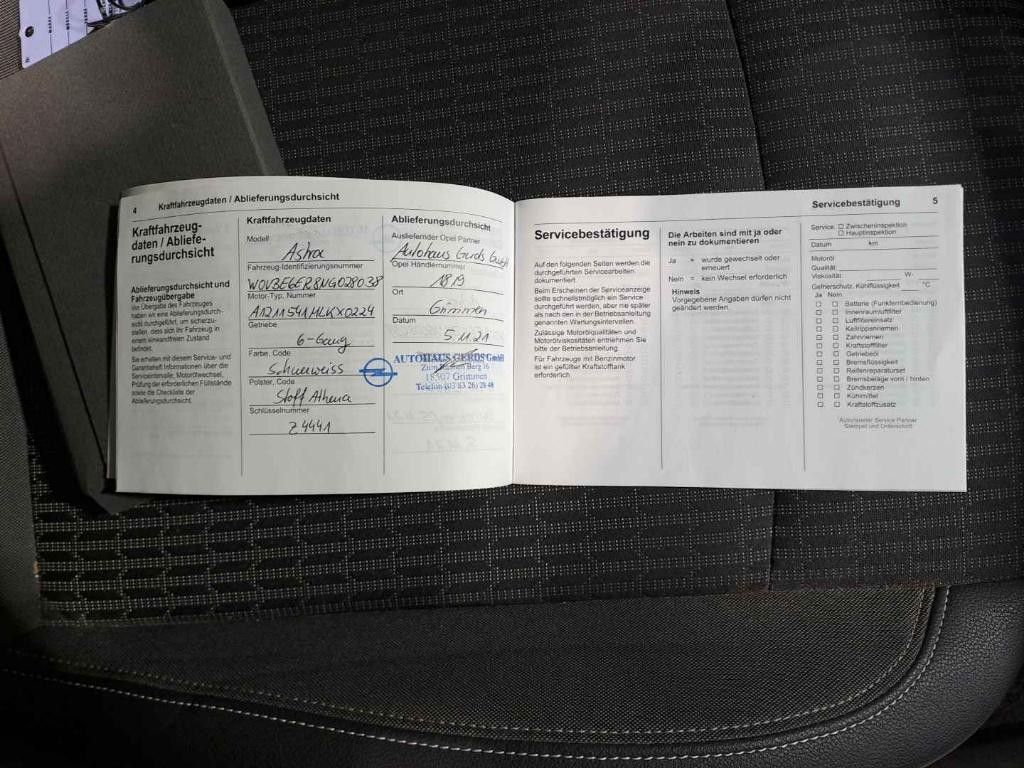 4 Kraftfahrzeugdaten / Ablieferungsdurchsicht
Kraftfahrzeug-
daten / Abliefe-
rungsdurchsicht
Ablieferungsdurchsicht und
Fahrzeugübergabe
Vor Übergabe des Fahrzeuges
haben wir eine Ablieferungsdurch-
sicht durchgeführt, um sicherzu-
stellen, dass sich Ihr Fahrzeug in
einem einwandfreien Zustand
befindet.
Sie erhalten mit diesem Service- und
Garantieheft Informationen über die
Serviceintervalle, Motorölwechsel,
Prüfung der erforderlichen Füllstände
sowie die Checkliste der
Ablieferungsdurchsicht.
Kraftfahrzeugdaten
Modell
Astra
Fahrzeug-Identifizierungsnummer
W0VBE6ER8NG028038
Motor-Typ, Nummer
A1211541MLKX0224
Getriebe
6-Gang
Farbe, Code
Schneeweiss
Polster, Code
Stoff Athena
Schlüsselnummer
Z4441
Ablieferungsdurchsicht
Ausliefernder Opel Partner
Autohaus Gerds GmbH
Opel Händlernummer
1819
Ort
Grimmen
Datum
5.11.21
AUTOHAUS GERDS GmbH
Zum Berg 16
18507 Grimmen
Telefon (03 83 26) 28 48
Servicebestätigung 5
Servicebestätigung
Auf den folgenden Seiten werden die
durchgeführten Servicearbeiten
dokumentiert.
Beim Erscheinen der Serviceanzeige
sollte schnellstmöglich ein Service
durchgeführt werden, aber nie später
als nach den in der Betriebsanleitung
genannten Wartungsintervallen.
Zulässige Motorölqualitäten und
Motorölviskositäten entnehmen Sie
bitte der Betriebsanleitung.
Für Fahrzeuge mit Benzinmotor
ist ein gefüllter Kraftstofftank
erforderlich.
Die Arbeiten sind mit ja oder
nein zu dokumentieren
Ja = wurde gewechselt oder
erneuert
Nein = kein Wechsel erforderlich
Hinweis
Vorgegebene Angaben dürfen nicht
geändert werden.
Service: ☐ Zwischeninspektion
☐ Hauptinspektion
Datum km
Motoröl
Qualität:
Viskosität: W-
Gefrierschutz, Kühlflüssigkeit °C
Ja Nein
☐ ☐ Batterie (Funkfernbedienung)
☐ ☐ Innenraumluftfilter
☐ ☐ Luftfiltereinsatz
☐ ☐ Keilrippenriemen
☐ ☐ Zahnriemen
☐ ☐ Kraftstofffilter
☐ ☐ Getriebeöl
☐ ☐ Bremsflüssigkeit
☐ ☐ Reifenreparaturset
☐ ☐ Bremsbeläge vorn / hinten
☐ ☐ Zündkerzen
☐ ☐ Kühlmittel
☐ ☐ Kraftstoffzusatz
Autorisierter Service Partner
Stempel und Unterschrift